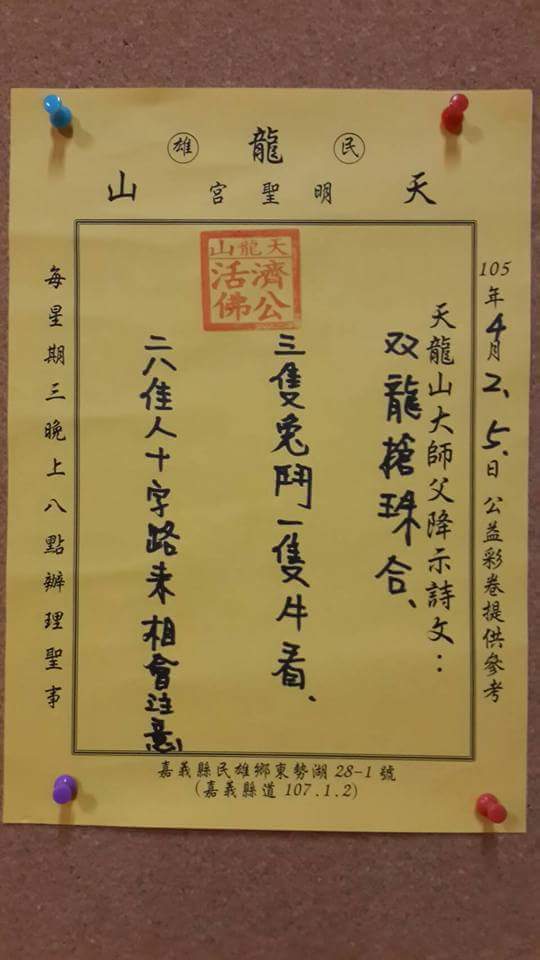 民 龍 雄
天 明聖宮 山
105年4月2、5、日 公益彩卷提供參考
天龍山大師父降示詩文：
双龍搶珠合、
天龍山
濟公
活佛
三隻兎鬥一隻牛看、
二八佳人十字路來相會注意
每星期三晚上八點辦理聖事
嘉義縣民雄鄉東勢湖28-1號
(嘉義縣道107.1.2)